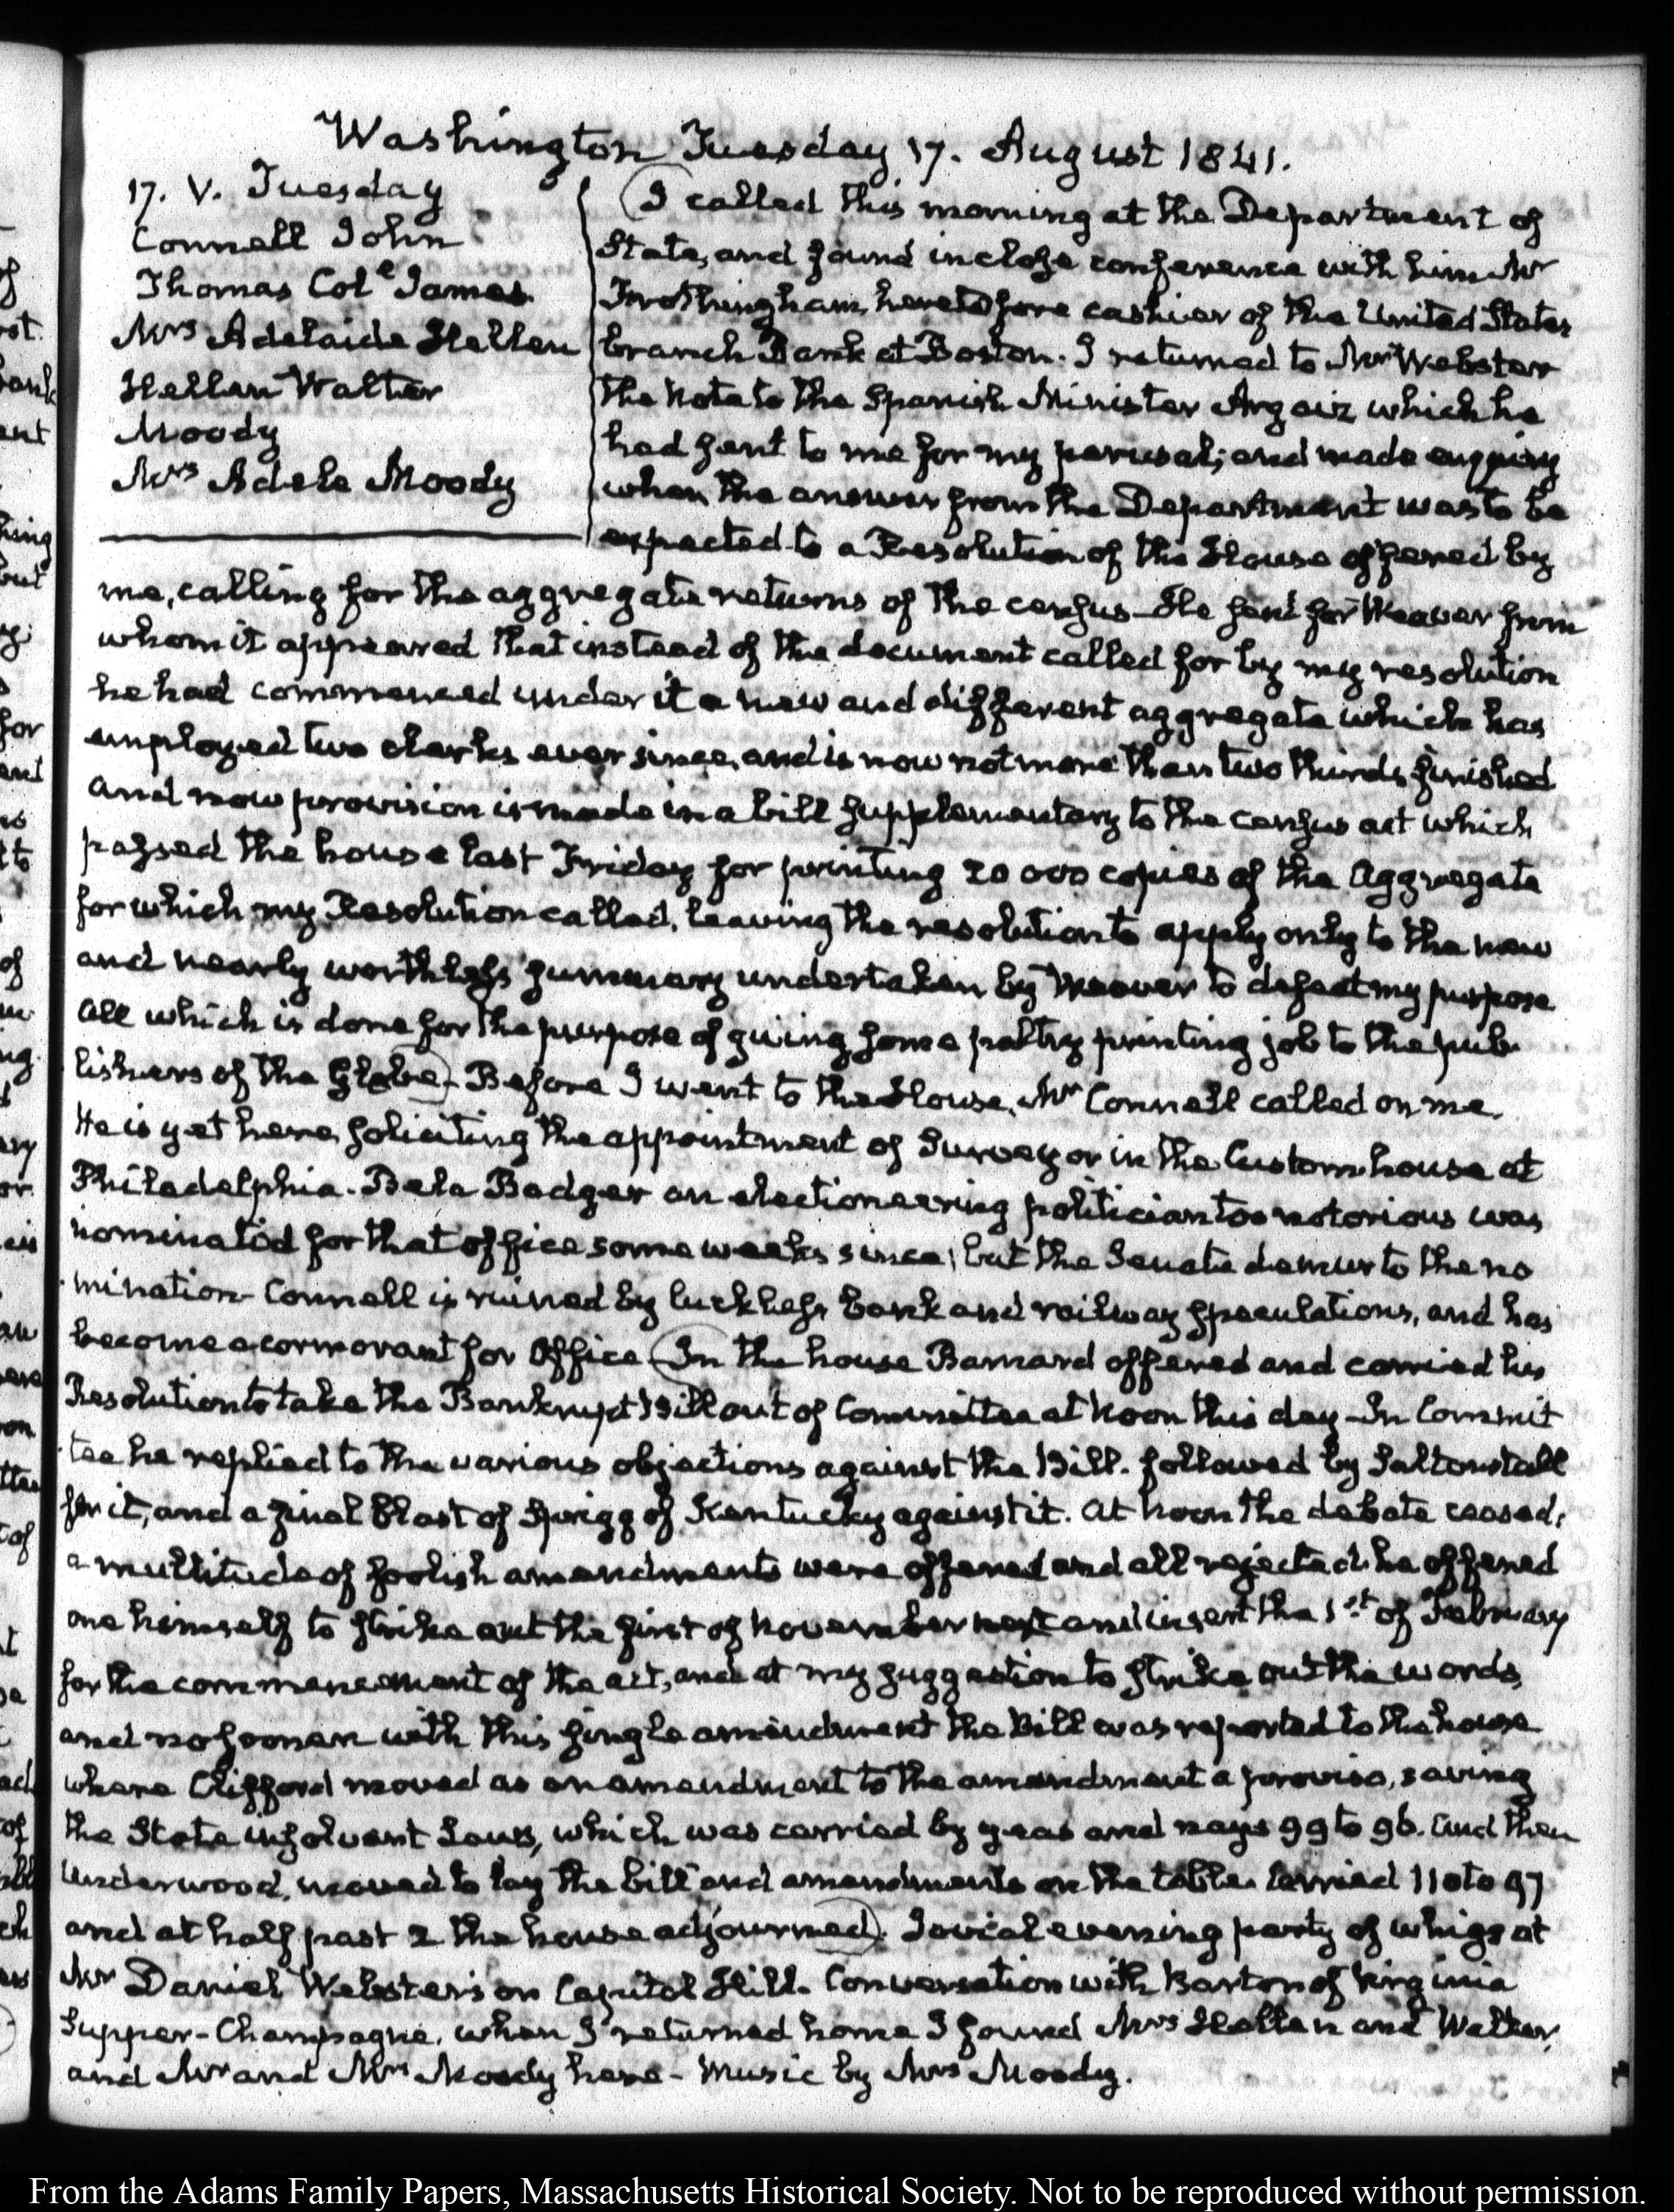 Washington Tuesday 17. August 1841.
17. V. Tuesday
Connell John
Thomas Col.e James.
Mrs Adelaide Hellen
Hellen Walter
Moody
Mrs Adele Moody
I called this morning at the Department of
State, and found in close conference with him Mr
Frothingham, heretofore cashier of the United States
branch Bank at Boston. I returned to Mr Webster
the Note to the Spanish Minister Argaiz which he
had sent to me for my perusal; and made enquiry
when the answer from the Department was to be
expected to a Resolution of the House offered by
me, calling for the aggregate returns of the census. He sent for Weaver from
whom it appeared that instead of the document called for by my resolution
he had commenced under it a new and different aggregate which has
employed two clerks ever since, and is now not more than two thirds finished
and now provision is made in a bill supplementary to the census act which
passed the house last Friday for printing 20000 copies of the Aggregate
for which my Resolution called, leaving the resolution to apply only to the new
and nearly worthless summary undertaken by Weaver to defeat my purpose
all which is done for the purpose of giving some paltry printing job to the pub-
lishers of the Globe- Before I went to the House, Mr Connell called on me.
He is yet here soliciting the appointment of Surveyor in the Custom house at
Philadelphia. Bela Badger an electioneering politician too notorious was
nominated for that office some weeks since; but the Senate demur to the no
mination- Connell is ruined by luckless bank and railway speculations, and has
become a cormorant for Office In the house Barnard offered and carried his
Resolution to take the Bankrupt Bill out of Committee at Noon this day- In Commit
tee he replied to the various objections against the Bill. followed by Saltonstall
for it, and a final blast of Sprigg of Kentucky against it. At Noon the debate ceased,
a multitude of foolish amendments were offered and all rejected. he offered
one himself to strike out the first of November next and insert the 1st of February
for the commencement of the act, and at my suggestion to strike out the words
and no sooner with this single amendment the Bill was reported to the house
where Clifford moved as an amendment to the amendment a proviso, saving
the State insolvent Laws, which was carried by yeas and nays 99 to 96. and then
Underwood, moved to lay the bill and amendments on the table. Carried 110 to 97
and at half past 2 the house adjourned. Social evening party of whigs at
Mr Daniel Webster's on Capitol Hill. Conversation with Barton of Virginia
Supper- Champagne. when I returned home I found Mrs Hellen and Walter
and Mr and Mrs Moody here- Music by Mrs Moody.
From the Adams Family Papers, Massachusetts Historical Society. Not to be reproduced without permission.